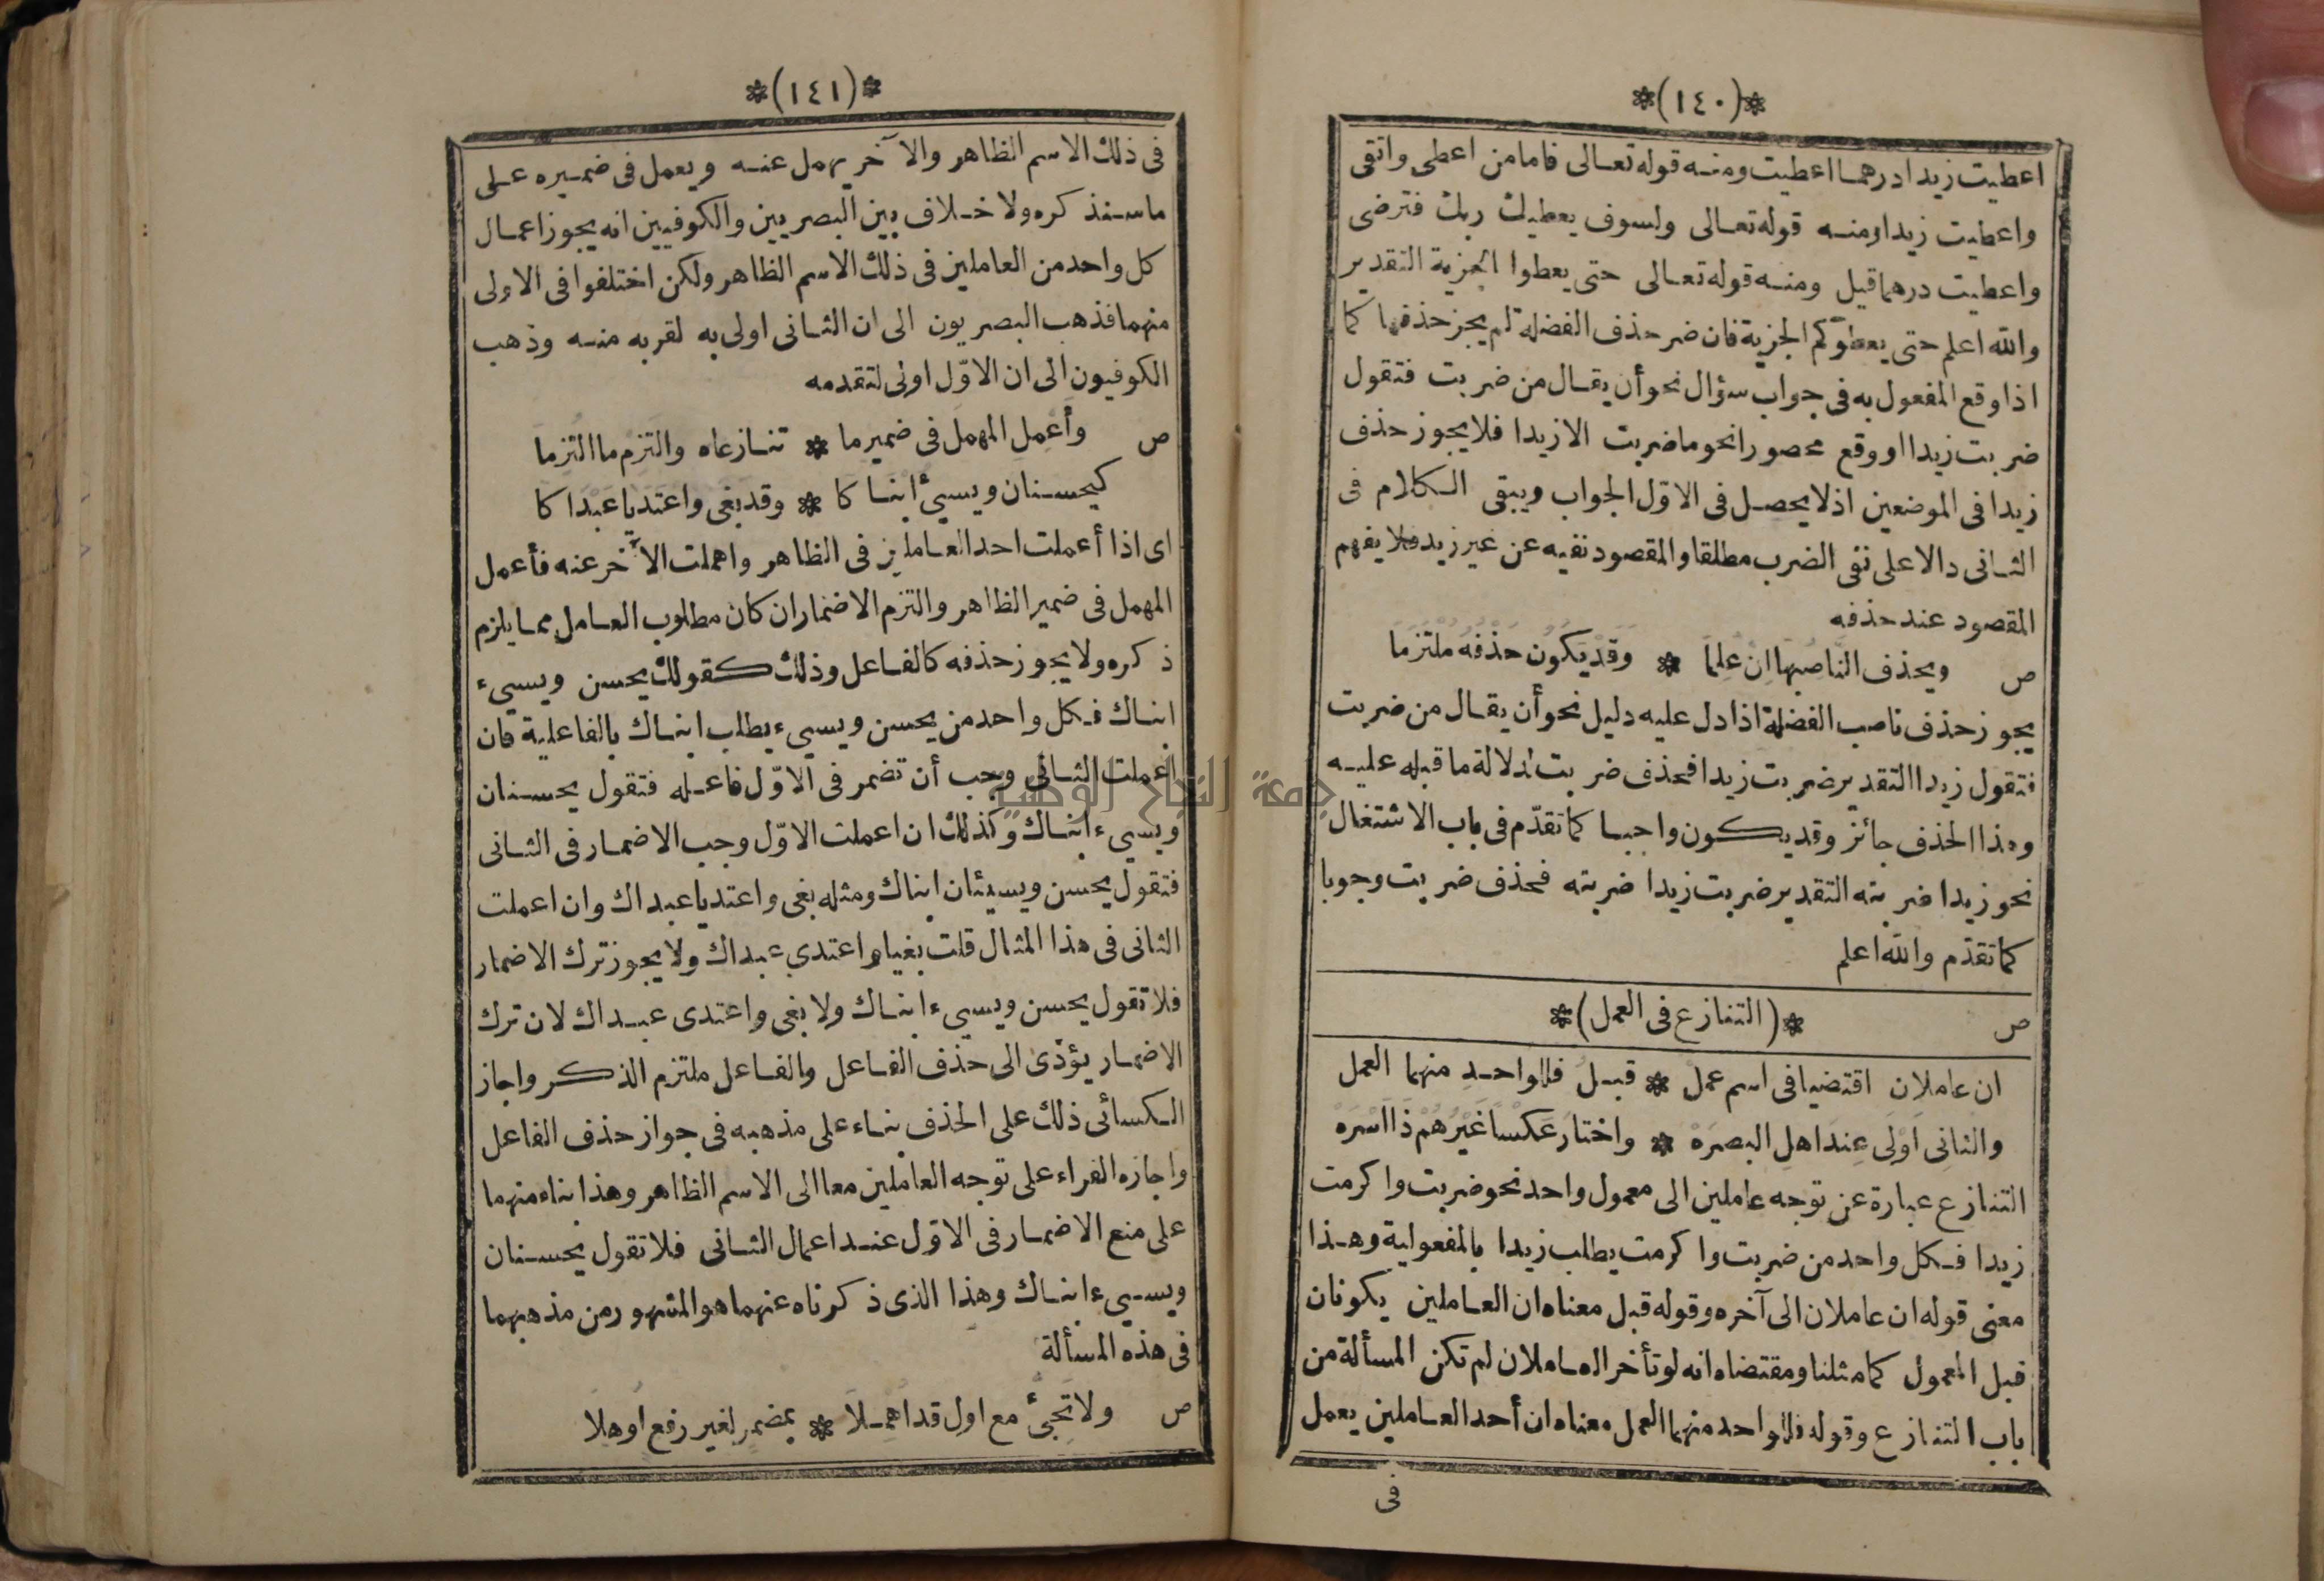 *(١٤٠)*
اعطيت زيدا درهما اعطيت ومنه قوله تعالى فاما من اعطى واتقى
واعطيت زيدا ومنه قوله تعالى ولسوف يعطيك ربك فترضى
واعطيت درهما قيل ومنه قوله تعالى حتى يعطوا الجزية التقدير
والله اعلم حتى يعطوكم الجزية فان ضر حذف الفضلة لم يجز حذفها كما
اذا وقع المفعول به فى جواب سؤال نحو أن يقال من ضربت فتقول
ضربت زيدا او وقع محصورا نحو ما ضربت الا زيدا فلا يجوز حذف
زيدا فى الموضعين اذ لا يحصل فى الاوّل الجواب ويبقى الكلام فى
الثانى دالا على نفى الضرب مطلقا والمقصود نفيه عن غير زيد فلا يفهم
المقصود عند حذفه
ص ويحذف النّاصبها انْ عُلِمَا * وَقَدْ يَكُونُ حَذْفُهُ مُلْتَزَمَا
يجوز حذف ناصب الفضلة اذا دل عليه دليل نحو أن يقال من ضربت
فتقول زيدا التقدير ضربت زيدا فحذف ضربت لدلالة ما قبله عليه
وهذا الحذف جائز وقد يكون واجبا كما تقدّم فى باب الاشتغال
نحو زيدا ضربته التقدير ضربت زيدا ضربته فحذف ضربت وجوبا
كما تقدّم والله اعلم
ص *(التنازع فى العمل)*
ان عاملان اقتضيا فى اسم عمل * قبل فللواحد منهما العمل
والثانى اَوْلَى عِنْدَ اهل البصره * واختار عَكْسًا غَيْرُهُمْ ذَا اسْرَهْ
التنازع عبارة عن توجه عاملين الى معمول واحد نحو ضربت واكرمت
زيدا فكل واحد من ضربت واكرمت يطلب زيدا بالمفعولية وهذا
معنى قوله ان عاملان الى آخره وقوله قبل معناه ان العاملين يكونان
قبل المعمول كما مثلنا ومقتضاه انه لو تأخر العاملان لم تكن المسألة من
باب التنازع وقوله فللواحد منهما العمل معناه ان أحد العاملين يعمل
فى
*(١٤١)*
فى ذلك الاسم الظاهر والآخر يهمل عنه ويعمل فى ضميره على
ما سنذكره ولا خلاف بين البصريين والكوفيين انه يجوز اعمال
كل واحد من العاملين فى ذلك الاسم الظاهر ولكن اختلفوا فى الاولى
منهما فذهب البصريون الى ان الثانى اولى به لقربه منه وذهب
الكوفيون الى ان الاوّل اولى لتقدمه
ص وأَعْمِل المهمل فى ضمير ما * تنازعاه والتزم ما التزما
كيحسنان ويسيئ ابنا كا * وقد بغى واعتديا عبدا كا
اى اذا أعملت احد العاملين فى الظاهر واهملت الآخر عنه فأعمل
المهمل فى ضمير الظاهر والتزم الاضمار ان كان مطلوب العامل مما يلزم
ذكره ولا يجوز حذفه كالفاعل وذلك كقولك يحسن ويسيء
ابناك فكل واحد من يحسن ويسيء يطلب ابناك بالفاعلية فان
اعملت الثانى وجب أن تضمر فى الاوّل فاعله فتقول يحسنان
ويسيء ابناك وكذلك ان اعملت الاوّل وجب الاضمار فى الثانى
فتقول يحسن ويسيئان ابناك ومثله بغى واعتديا عبداك وان اعملت
الثانى فى هذا المثال قلت بغيا واعتدي عبداك ولا يجوز ترك الاضمار
فلا تقول يحسن ويسيء ابناك ولا بغى واعتدى عبداك لان ترك
الاضمار يؤدّى الى حذف الفاعل والفاعل ملتزم الذكر واجاز
الكسائى ذلك على الحذف بناء على مذهبه فى جواز حذف الفاعل
واجازه الفراء على توجه العاملين معا الى الاسم الظاهر وهذا بناء منهما
على منع الاضمار فى الاوّل عند اعمال الثانى فلا تقول يحسنان
ويسيء ابناك وهذا الذى ذكرناه عنهما هو المشهور من مذهبهما
فى هذه المسألة
ص ولا تجئ مع اول قد اهملا * بمضمر لغير رفع اوهلا
جامعة النجاح الوطنية